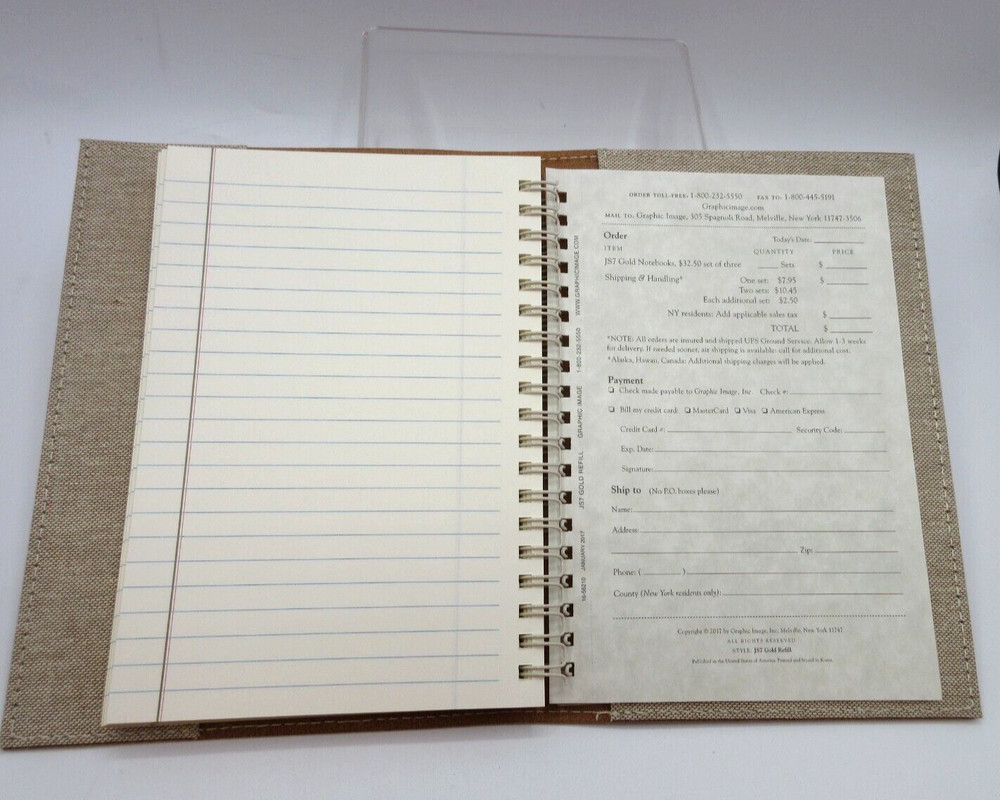 ORDER TOLL-FREE: 1-800-232-5550 FAX TO: 1-800-445-5191
Graphicimage.com
MAIL TO: Graphic Image, 305 Spagnoli Road, Melville, New York 11747-3506
Order Today's Date:
ITEM QUANTITY PRICE
JS7 Gold Notebooks, $32.50 set of three Sets $
Shipping & Handling* One set: $7.95 $
Two sets: $10.45
Each additional set: $2.50
NY residents: Add applicable sales tax $
TOTAL $
*NOTE: All orders are insured and shipped UPS Ground Service. Allow 1-3 weeks
for delivery. If needed sooner, air shipping is available: call for additional cost.
*Alaska, Hawaii, Canada: Additional shipping charges will be applied.
Payment
❏ Check made payable to Graphic Image, Inc. Check #:
❏ Bill my credit card: ❏ MasterCard ❏ Visa ❏ American Express
Credit Card #: Security Code:
Exp. Date:
Signature:
Ship to (No P.O. boxes please)
Name:
Address:
Zip:
Phone: ( )
County (New York residents only):
Copyright © 2017 by Graphic Image, Inc., Melville, New York 11747
ALL RIGHTS RESERVED
STYLE: JS7 Gold Refill
Published in the United States of America. Printed and bound in Korea.
16-58210 JANUARY 2017 JS7 GOLD REFILL GRAPHIC IMAGE 1-800-232-5550 WWW.GRAPHICIMAGE.COM